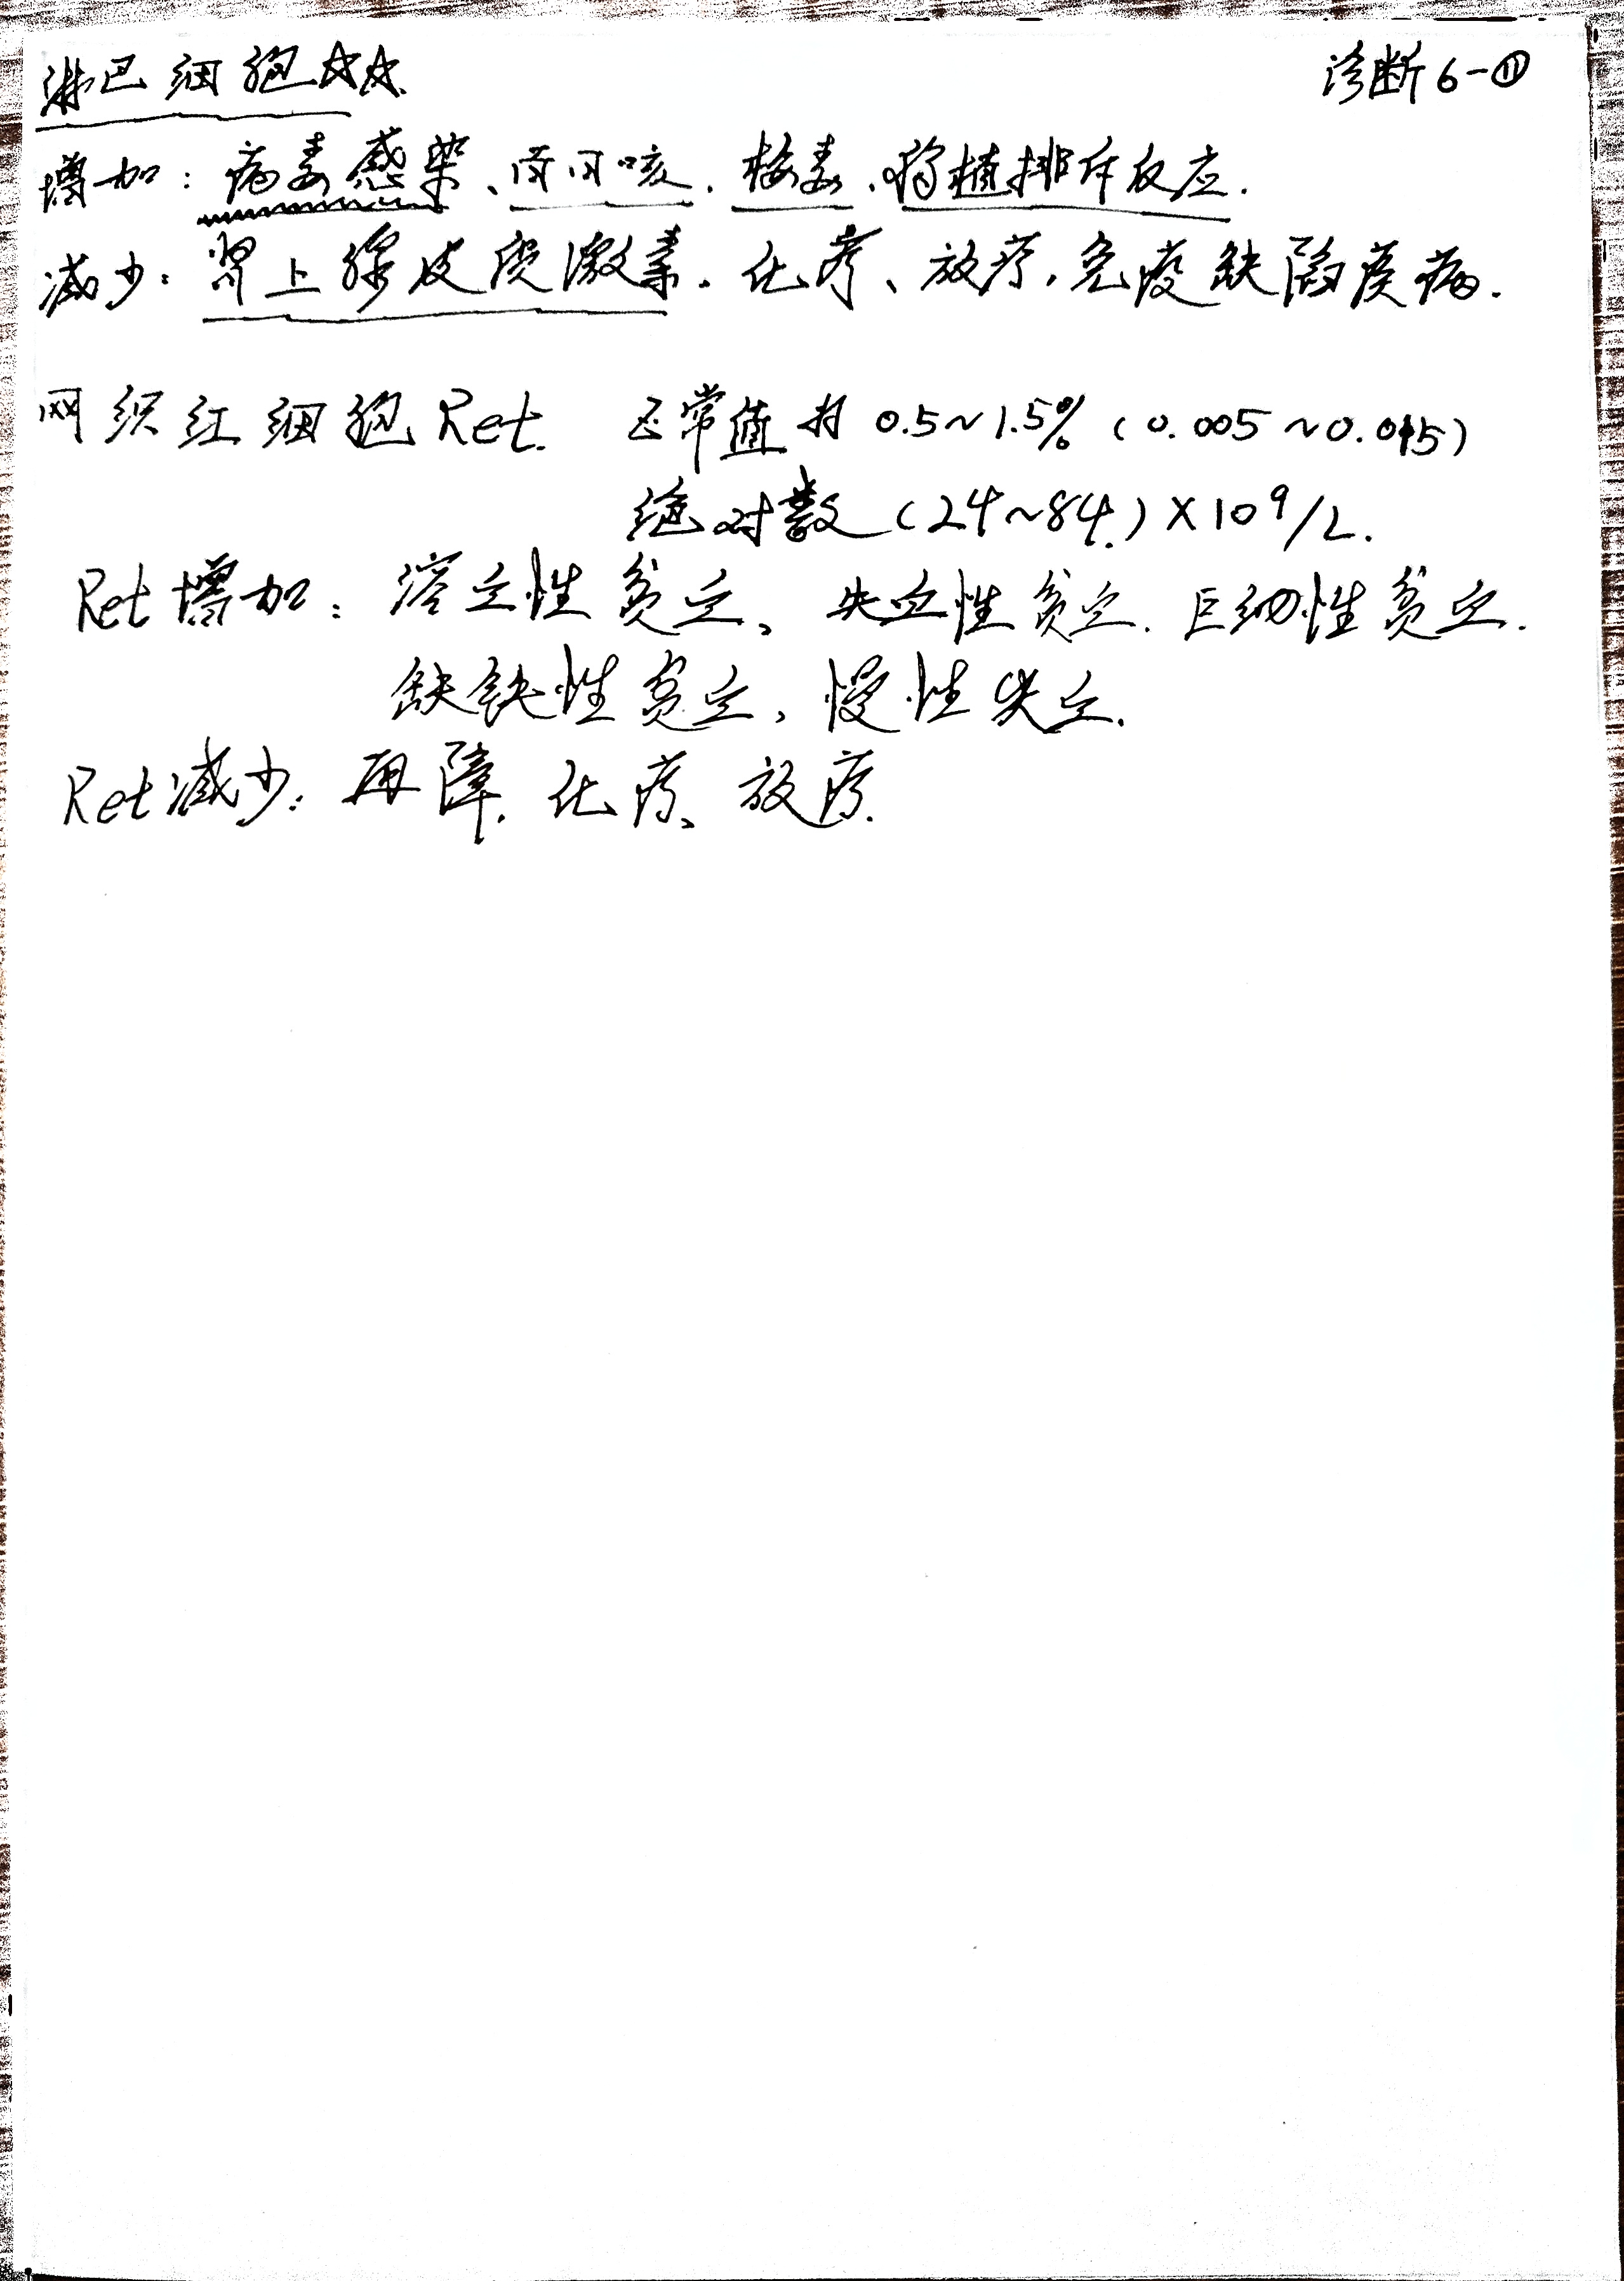 淋巴细胞☆☆. 诊断6-⑪
增加:病毒感染、百日咳.梅毒.移植排斥反应.
减少:肾上腺皮质激素.化疗、放疗.免疫缺陷疾病.
网织红细胞Ret. 正常值为0.5~1.5%(0.005~0.015)
绝对数(24~84)×10⁹/L.
Ret增加:溶血性贫血、失血性贫血.巨幼性贫血.
缺铁性贫血,慢性失血.
Ret减少:再障.化疗、放疗.